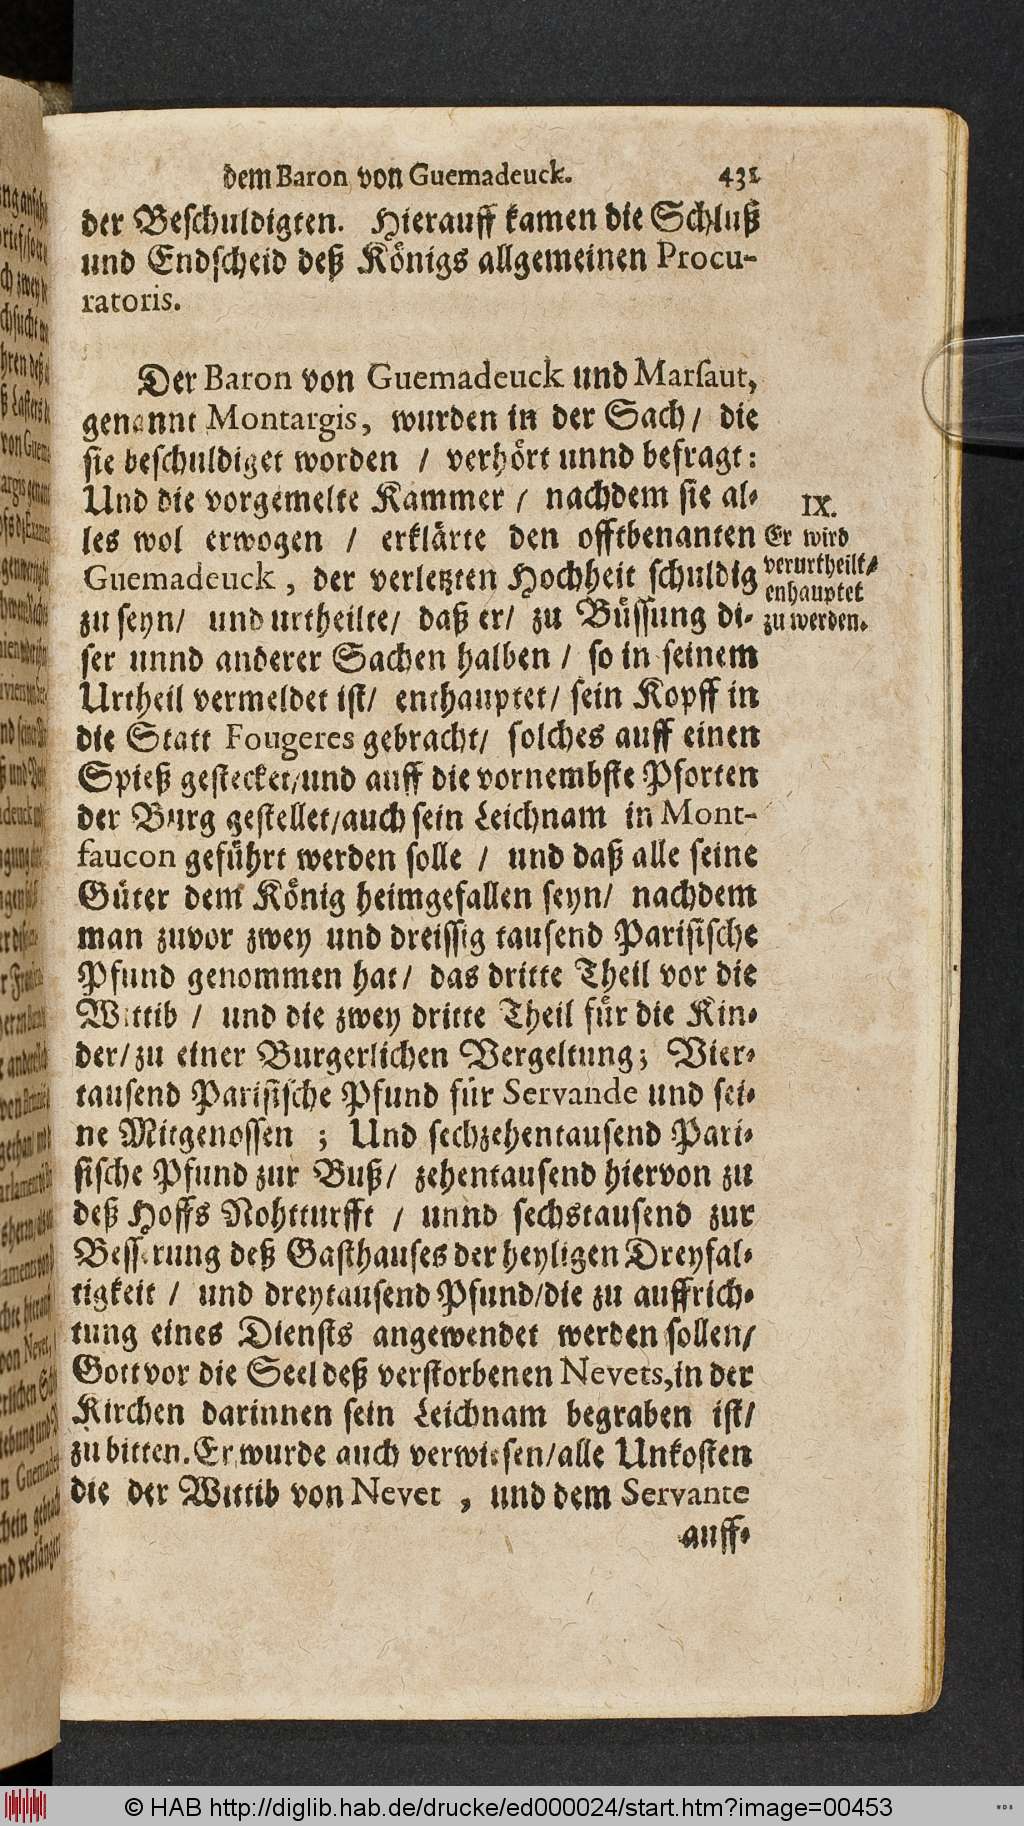 dem Baron von Guemadeuck. 431
der Beschuldigten. Hierauff kamen die Schluß
und Endscheid deß Königs allgemeinen Procu-
ratoris.
Der Baron von Guemadeuck und Marsaut,
genannt Montargis, wurden in der Sach / die
sie beschuldiget worden / verhört unnd befragt:
Und die vorgemelte Kammer / nachdem sie al-
les wol erwogen / erklärte den offtbenanten
Guemadeuck, der verletzten Hochheit schuldig
zu seyn / und urtheilte / daß er / zu Büssung di-
ser unnd anderer Sachen halben / so in seinem
Urtheil vermeldet ist / enthauptet / sein Kopff in
die Statt Fougeres gebracht / solches auff einen
Spieß gestecket / und auff die vornembste Pforten
der Burg gestellet / auch sein Leichnam in Mont-
faucon geführt werden solle / und daß alle seine
Güter dem König heimgefallen seyn / nachdem
man zuvor zwey und dreissig tausend Parisische
Pfund genommen hat / das dritte Theil vor die
Wittib / und die zwey dritte Theil für die Kin-
der / zu einer Burgerlichen Vergeltung; Vier-
tausend Parisische Pfund für Servande und sei-
ne Mitgenossen ; Und sechzehentausend Pari-
sische Pfund zur Buß / zehentausend hiervon zu
deß Hoffs Nohtturfft / unnd sechstausend zur
Besserung deß Gasthauses der heyligen Dreyfal-
tigkeit / und dreytausend Pfund / die zu auffrich-
tung eines Diensts angewendet werden sollen /
Gott vor die Seel deß verstorbenen Nevets, in der
Kirchen darinnen sein Leichnam begraben ist /
zu bitten. Er wurde auch verwiesen / alle Unkosten
die der Wittib von Nevet , und dem Servante
auff-
IX.
Er wird
verurtheilt /
enhauptet
zu werden.
© HAB http://diglib.hab.de/drucke/ed000024/start.htm?image=00453